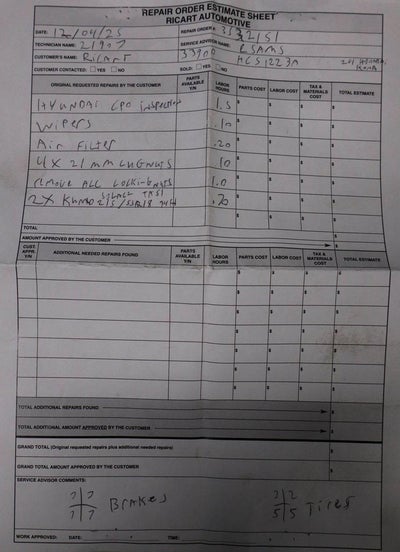 REPAIR ORDER ESTIMATE SHEET
RICART AUTOMOTIVE
DATE: 12/04/25 REPAIR ORDER #:
TECHNICIAN NAME: 21907 SERVICE ADVISOR NAME:
CUSTOMER'S NAME: Ricart HCS1223A
CUSTOMER CONTACTED: YES NO SOLD: YES NO
ORIGINAL REQUESTED REPAIRS BY THE CUSTOMER PARTS AVAILABLE Y/N LABOR HOURS PARTS COST LABOR COST TAX & MATERIALS COST TOTAL ESTIMATE
HYUNDAI CPO Inspection 1.5 $ $ $ $
Wipers .10 $ $ $ $
Air Filter .20 $ $ $ $
4X 21mm LUGNUTS .10 $ $ $ $
remove ALL LOCKINGNUTS 1.0 $ $ $ $
2X Kumho .70 $ $ $ $
TOTAL
AMOUNT APPROVED BY THE CUSTOMER $
CUST. APPR. Y/N ADDITIONAL NEEDED REPAIRS FOUND PARTS AVAILABLE Y/N LABOR HOURS PARTS COST LABOR COST TAX & MATERIALS COST TOTAL ESTIMATE
$ $ $ $
$ $ $ $
$ $ $ $
$ $ $ $
$ $ $ $
$ $ $ $
$ $ $ $
TOTAL ADDITIONAL REPAIRS FOUND $
TOTAL ADDITIONAL AMOUNT APPROVED BY THE CUSTOMER $
GRAND TOTAL (Original requested repairs plus additional needed repairs) $
GRAND TOTAL AMOUNT APPROVED BY THE CUSTOMER $
SERVICE ADVISOR COMMENTS:
7 7 Brakes 2 2 Tires
7 7 5 5
WORK APPROVED: DATE: TIME: